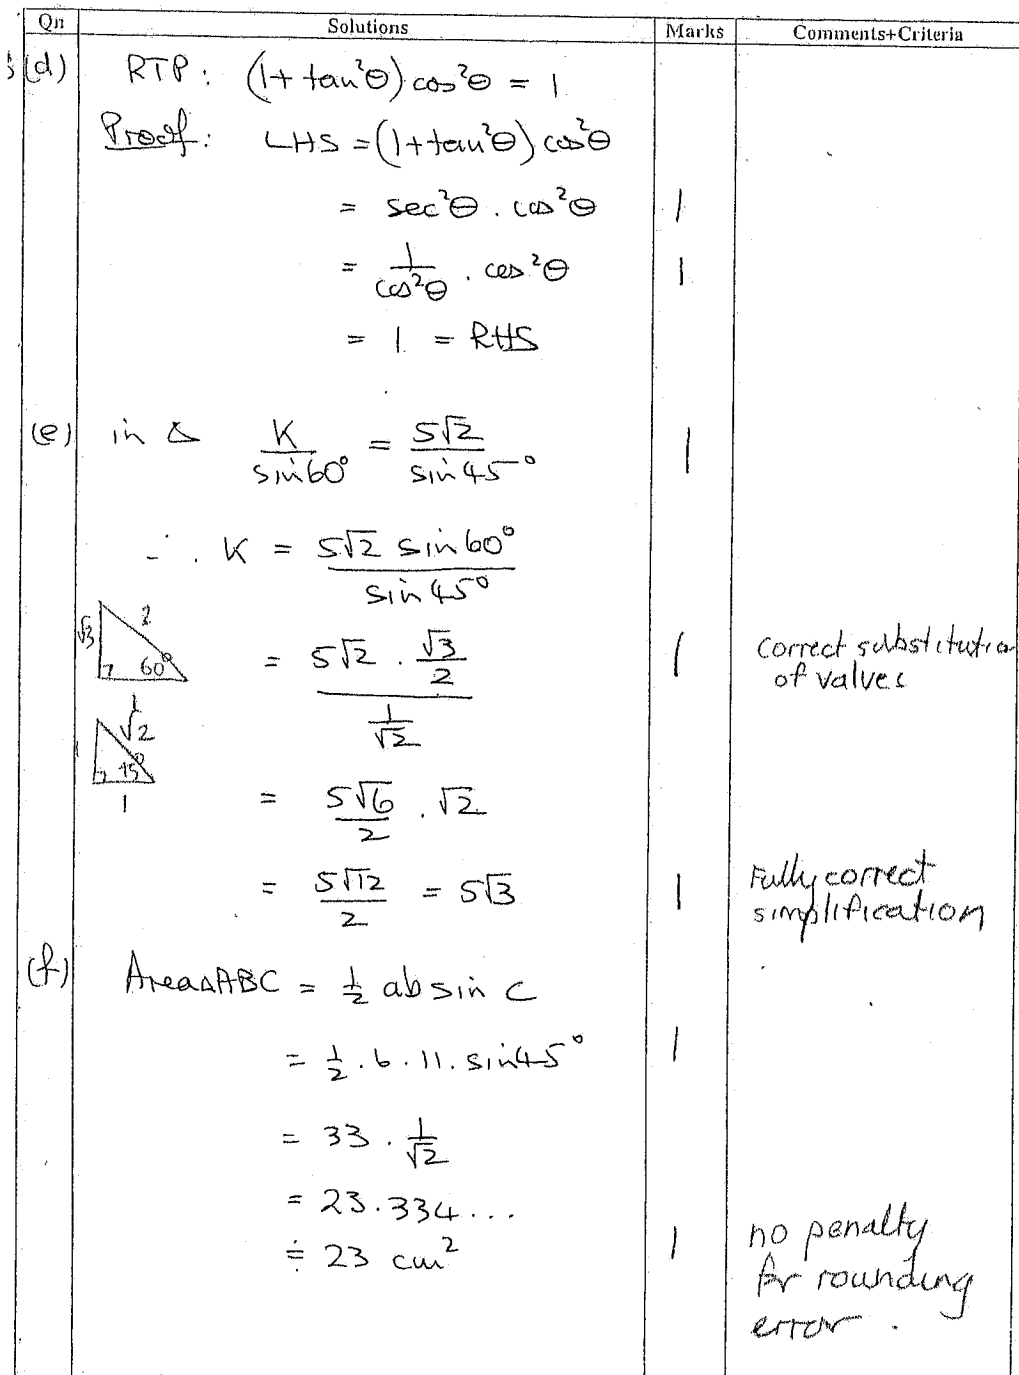 Qn Solutions Marks Comments+Criteria
(d) RTP: (1 + tan²θ) cos²θ = 1
Proof: LHS = (1 + tan²θ) cos²θ
= sec²θ . cos²θ 1
= 1/cos²θ . cos²θ 1
= 1 = RHS
(e) in Δ K/sin60° = 5√2/sin45° 1
∴ K = 5√2 sin60°/sin45°
√3 2 60° 1
= (5√2 . √3/2)/(1/√2) 1 Correct substitution of values
√2 45° 1
= 5√6/2 . √2
= 5√12/2 = 5√3 1 Fully correct simplification
(f) AreaΔABC = ½ ab sin C
= ½ . 6 . 11 . sin45° 1
= 33 . 1/√2
= 23.334...
≑ 23 cm² 1 no penalty
for rounding
error .